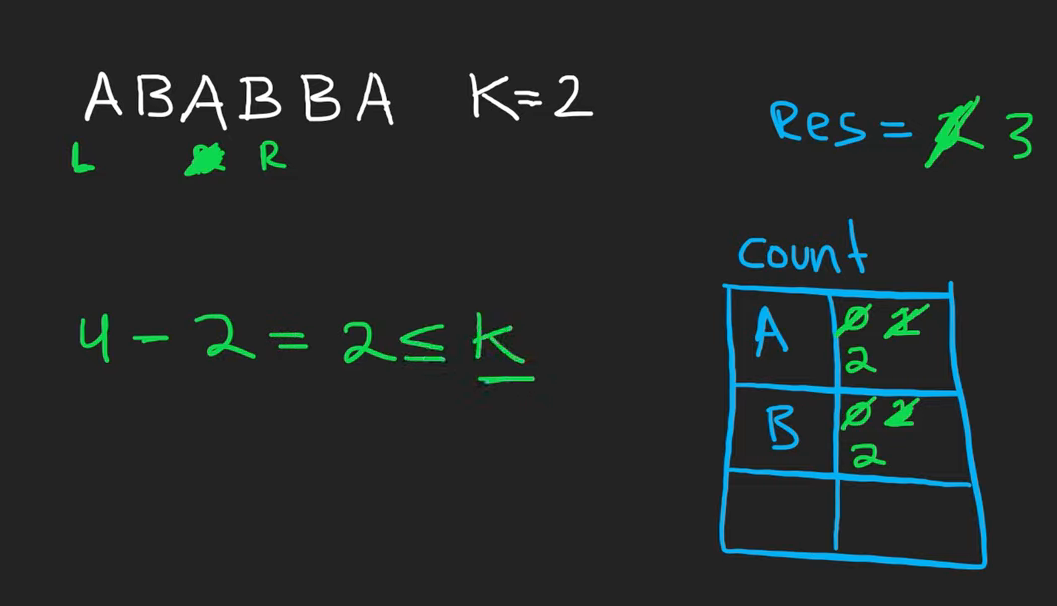 ABABBA K=2
L R
Res = 3
4 - 2 = 2 ≤ k
Count
A 0 1
2
B 0 1
2